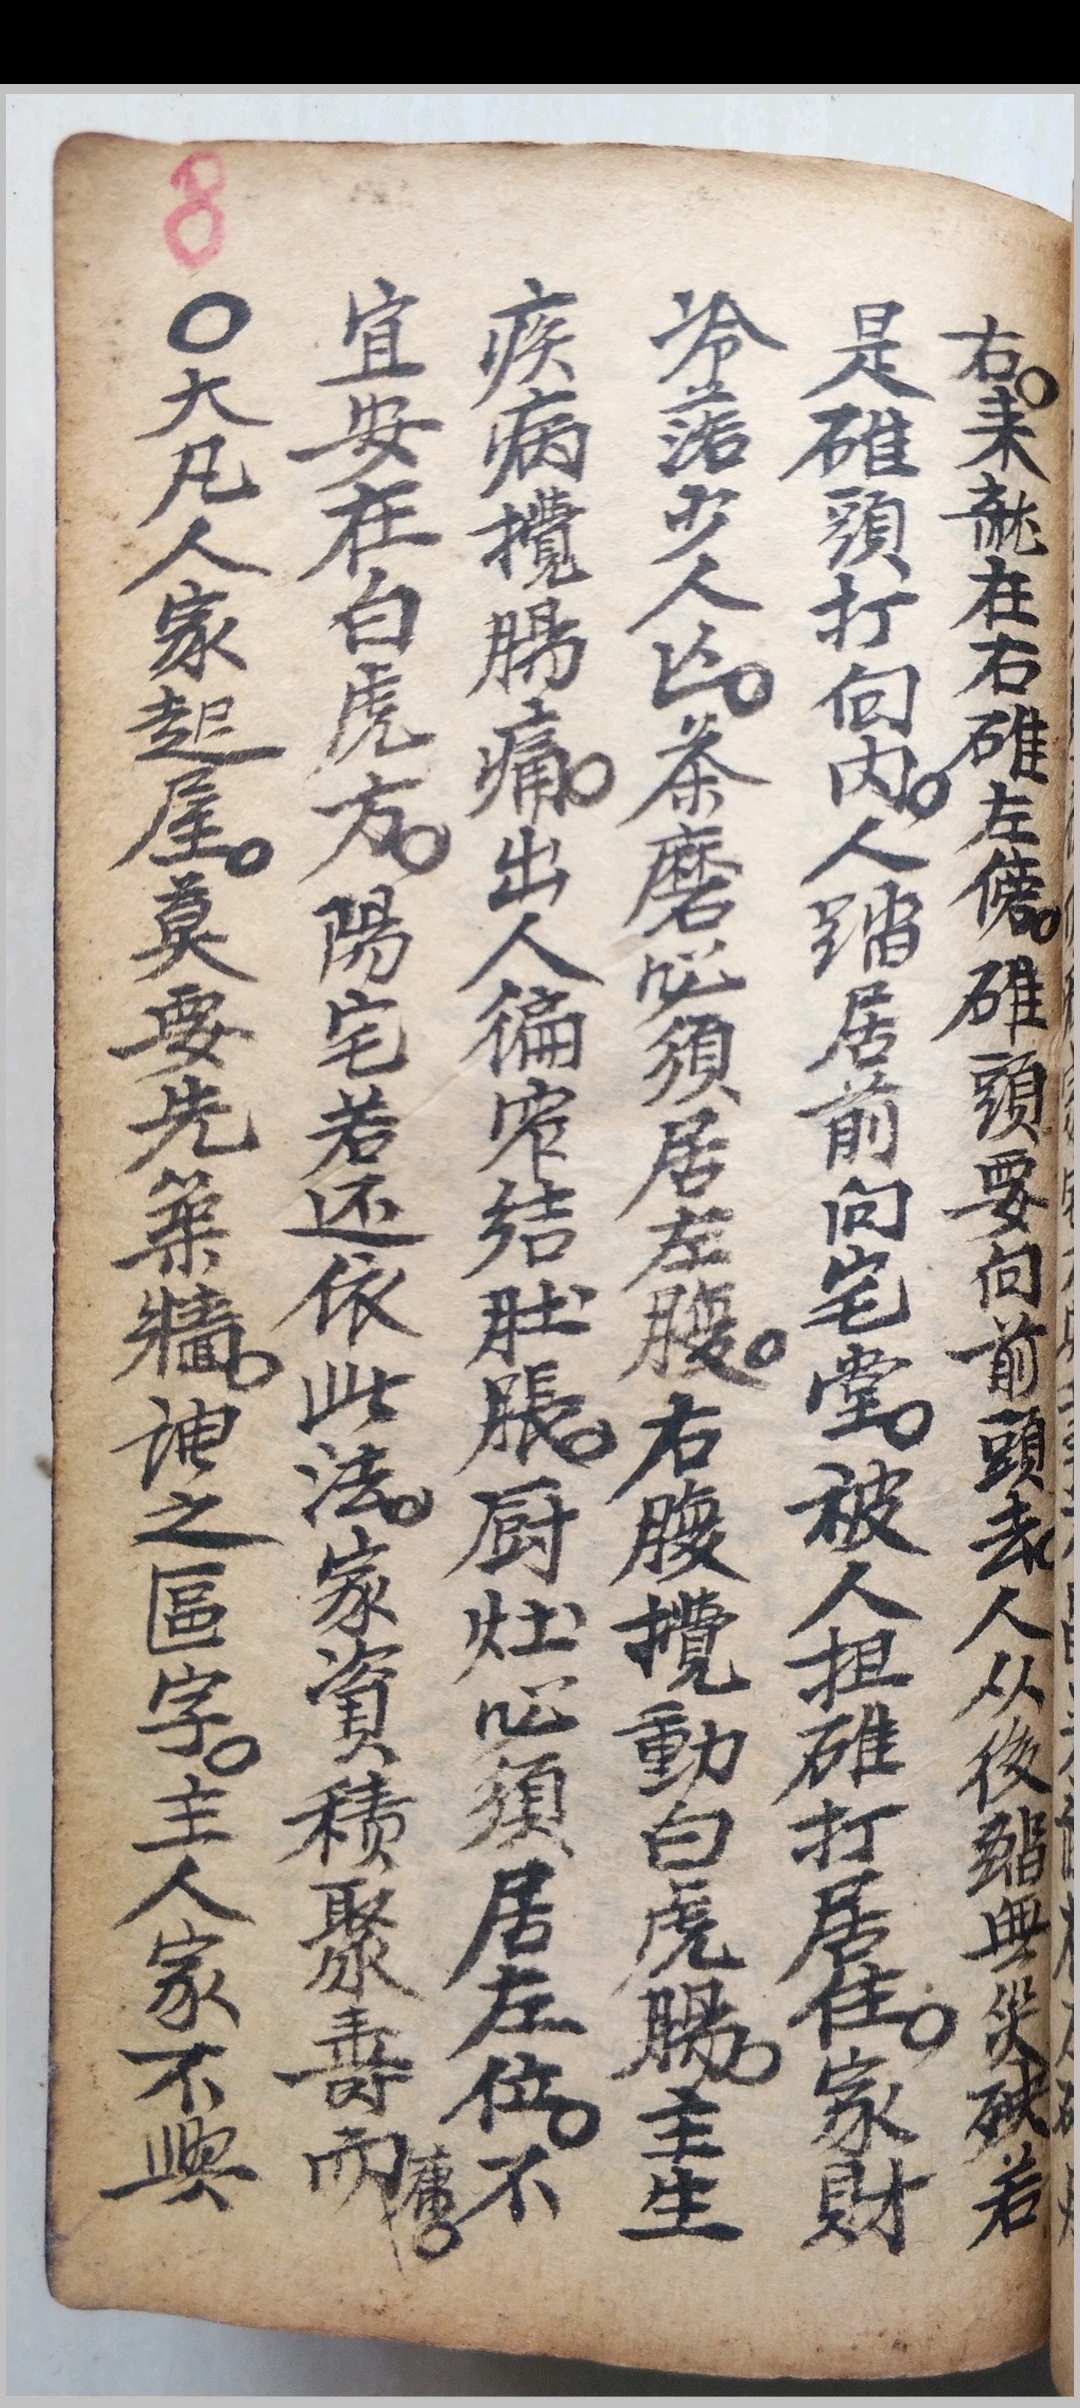 右。耒就在右碓左傍。碓頭要向前頭去。人从後踏無災殃若
是碓頭打向內。人踏居前向宅堂。被人担碓打居住。家財
冷落少人亡。茶磨必須居左腹。右腹攪動白虎腸。主生
疾病攪腸痛。出人偏窄結肚脹。厨灶必須居左位。不
宜安在白虎方。陽宅若还依此法。家資積聚壽而康。
〇大凡人家起屋。莫要先築牆。謂之區字。主人家不興
8